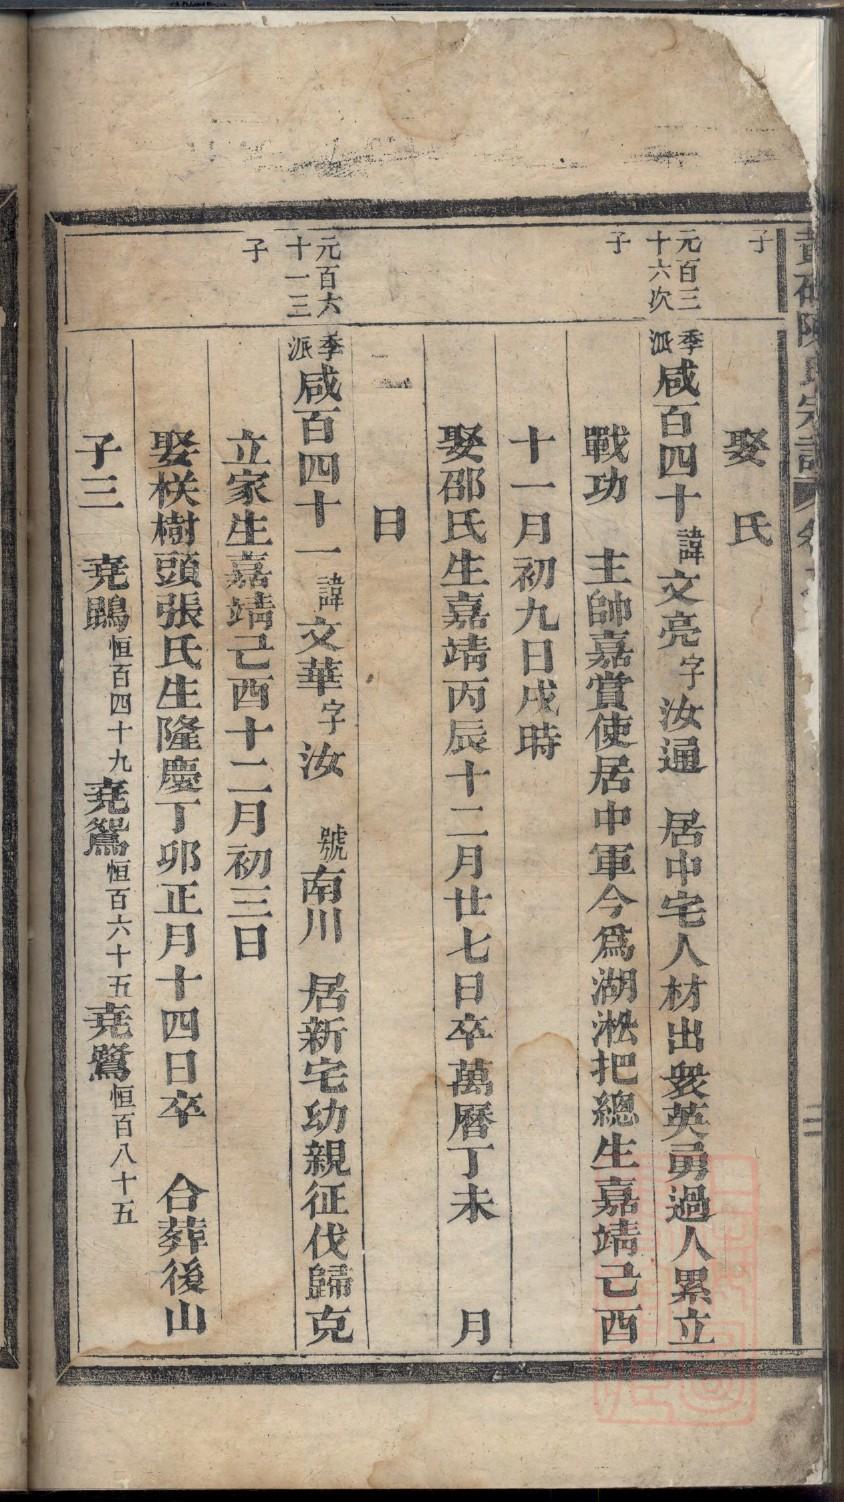 陳氏宗譜
子
娶　氏
元百三十六次子
季派咸百四十諱文亮字汝通　居中宅人材出衆英勇過人累立
戰功　主帥嘉賞使居中軍今爲湖淞把總生嘉靖己酉
十一月初九日戌時
娶邵氏生嘉靖丙辰十二月廿七日卒萬曆丁未　月
日
元百六十一三子
季派咸百四十一諱文華字汝　號南川　居新宅幼親征伐歸克
立家生嘉靖己酉十二月初三日
娶栚樹頭張氏生隆慶丁卯正月十四日卒　合葬後山
子三　堯鵾恒百四十九堯鴛恒百六十五堯鷺恒百八十五